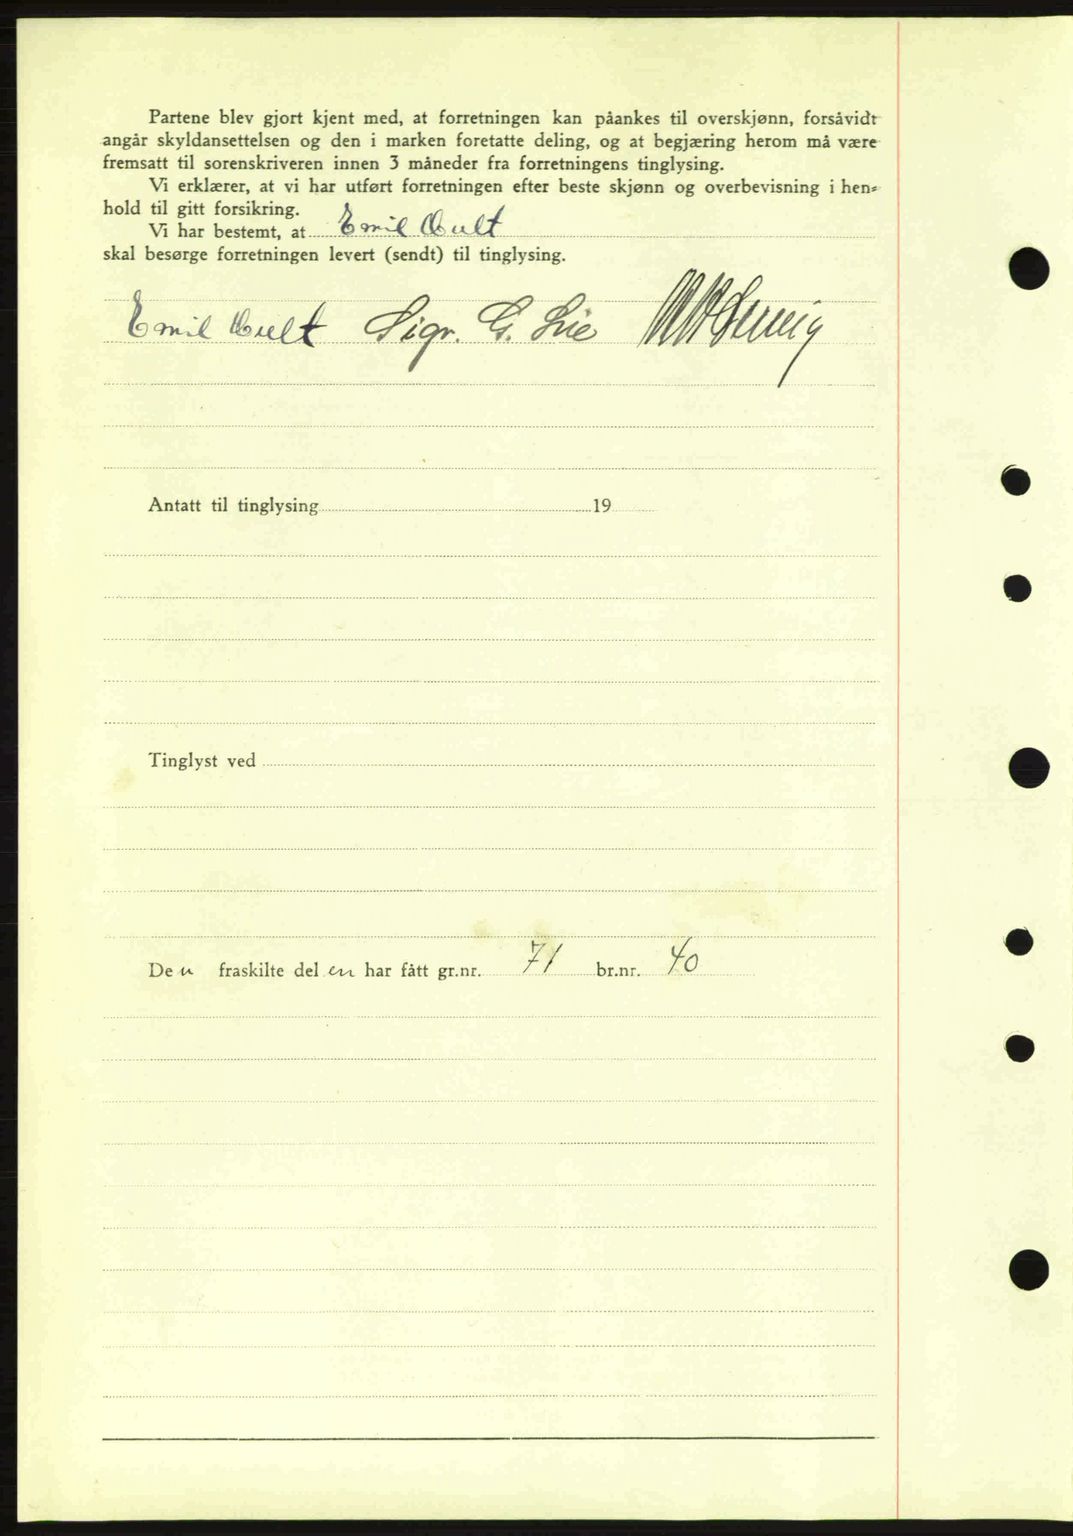 Partene blev gjort kjent med, at forretningen kan påankes til overskjønn, forsåvidt
angår skyldansettelsen og den i marken foretatte deling, og at begjæring herom må være
fremsatt til sorenskriveren innen 3 måneder fra forretningens tinglysing.
Vi erklærer, at vi har utført forretningen efter beste skjønn og overbevisning i hen-
hold til gitt forsikring.
Vi har bestemt, at Emil Hult
skal besørge forretningen levert (sendt) til tinglysing.
Emil Hult Sigr. G. Lie
Antatt til tinglysing 19
Tinglyst ved
Den fraskilte del en har fått gr.nr. 71 br.nr. 40